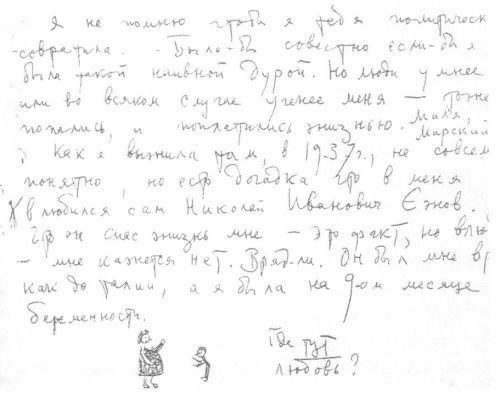 Я не помню чтобы я тебя политическ
-совратила. - Было-бы совестно если-бы я
была такой наивной дурой. Но люди умнее
или во всяком случае ученее меня — тоже
попались, и поплатились жизнью. Миля,
Мирский
Как я выжила там, в 1937г., не совсем
понятно, но есть догадка что в меня
влюбился сам Николай Иванович Ежов.
Что он спас жизнь мне — это факт, но влю
- мне кажется нет. Вряд-ли. Он был мне в
как до талии, а я была на 9-ом месяце
беременности.
Где тут
любовь?